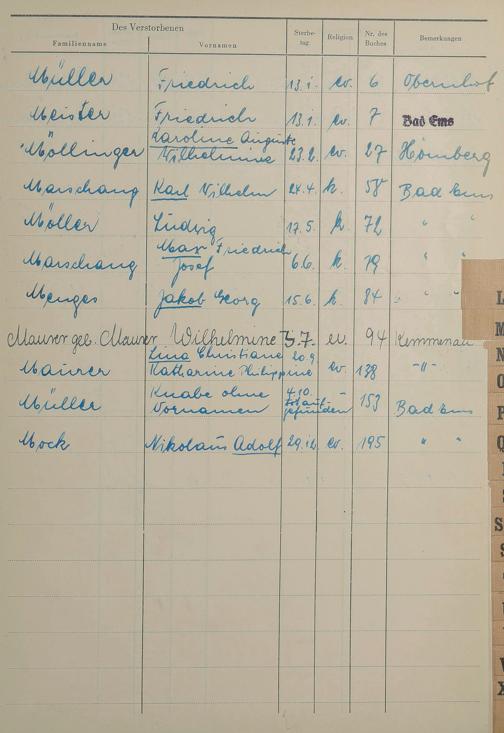 Des Verstorbenen
Familienname Vornamen Sterbe-tag Religion Nr. des Buches Bemerkungen
Müller Friedrich 13.1. ev. 6 Obernhof
Meister Friedrich 13.1. ev. 7 Bad Ems
Möllinger Karoline Auguste Wilhelmine 23.2. ev. 27 Hömberg
Marschang Karl Wilhelm 24.4. k. 58 Bad Ems
Möller Ludwig 17.5. k. 72 " "
Marschang Max Friedrich Josef 6.6. k. 79 " "
Menges Jakob Georg 15.6. k. 84 " "
Maurer geb. Maurer Wilhelmine 3.7. ev. 94 Kemmenau
Maurer Lina Christiane Katharine Philippine 20.9. ev. 138 -"-
Müller Knabe ohne Vornamen 4.10. tot auf-gefunden - 153 Bad Ems
Mock Nikolaus Adolf 29.12. ev. 195 " "
L
M
N
O
P
Q
S
S
X